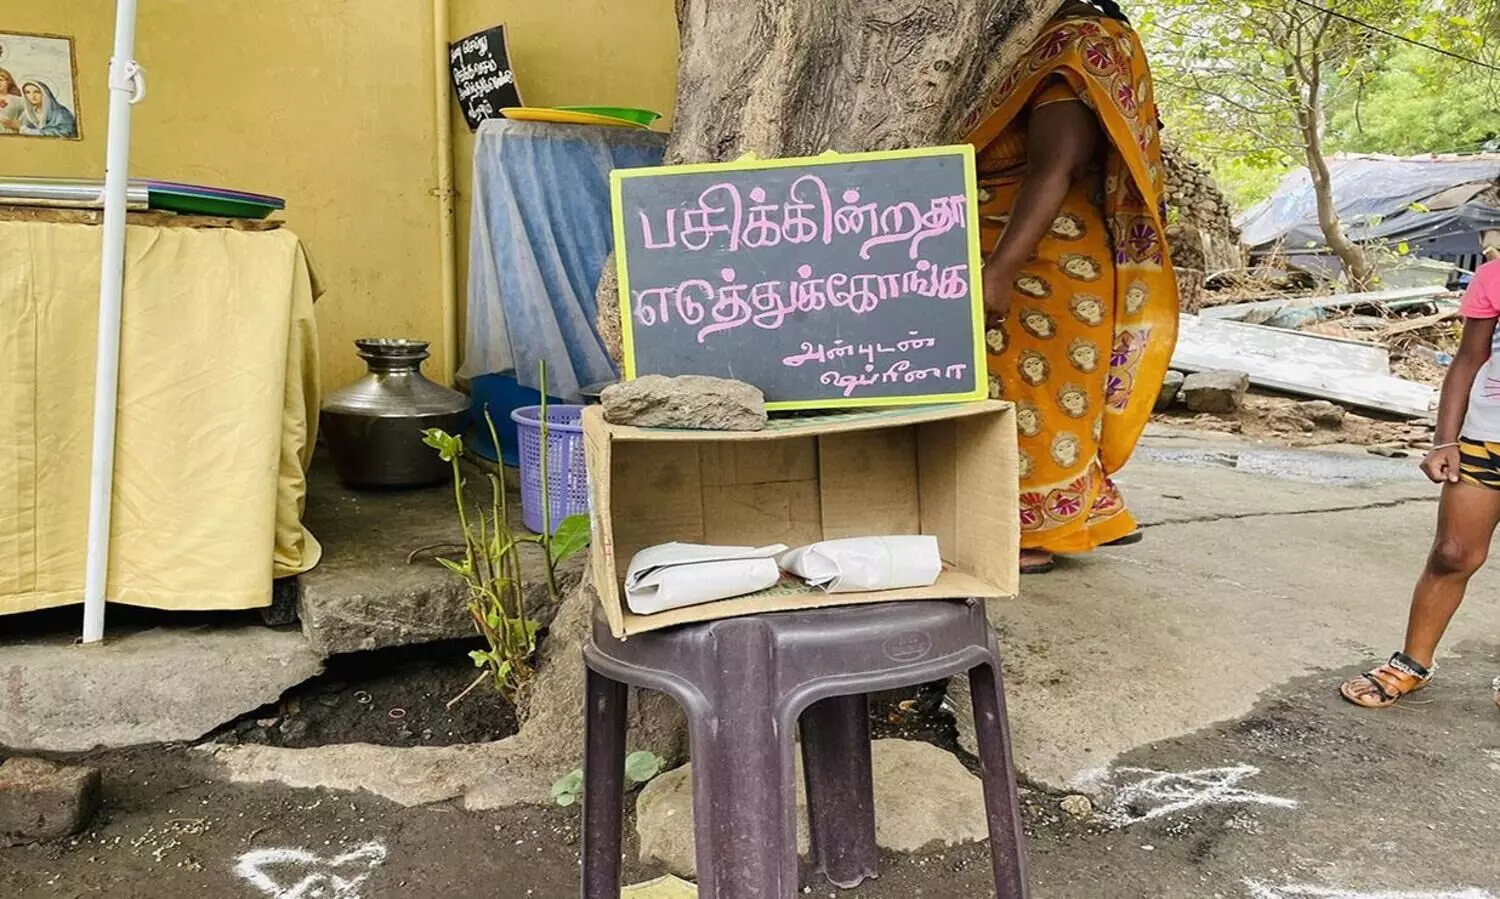 பசிக்கின்றதா
எடுத்துக்கோங்க
அன்புடன்
ஷப்ரீனா